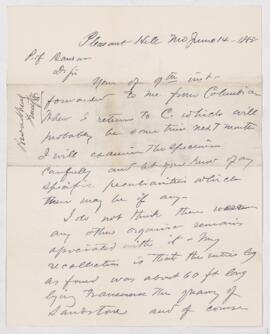 Pleasant Hill Mo June 14 - 188
Prof Dawson
Dr Sir
Yours of 9th inst -
forwarded to me from Columbia
When I return to C. which will
probably be some time next month
I will examine the specimen
carefully and let you know of any
specific peculiarities which
there may be if any.
I do not think there were
any other organic remains
associated with it - My
recollection is that the entire log
as found was about 60 ft long
lying transverse the quarry of
Sandstone and of course